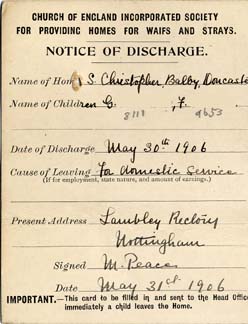 CHURCH OF ENGLAND INCORPORATED SOCIETY
FOR PROVIDING HOMES FOR WAIFS AND STRAYS.
NOTICE OF DISCHARGE.
Name of Home S. Christopher, Balby, Doncaster
Name of Children G. , F.
8111 9653
Date of Discharge May 30th 1906
Cause of Leaving For domestic service
(If for employment, state nature, and amount of earnings.)
Present Address Lambley Rectory
Nottingham
Signed M. Peace
Date May 31st 1906
IMPORTANT.—This card to be filled in and sent to the Head Office
immediately a child leaves the Home.